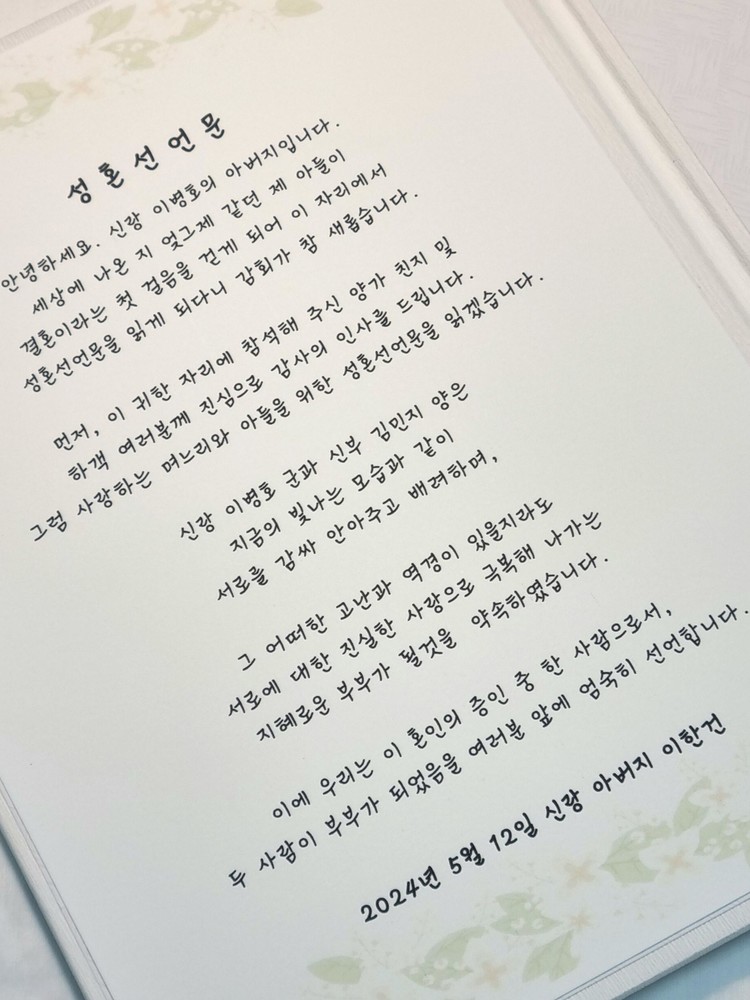 성혼선언문
안녕하세요. 신랑 이병호의 아버지입니다.
세상에 나온 지 엊그제 같던 제 아들이
결혼이라는 첫 걸음을 걷게 되어 이 자리에서
성혼선언문을 읽게 되다니 감회가 참 새롭습니다.
먼저, 이 귀한 자리에 참석해 주신 양가 친지 및
하객 여러분께 진심으로 감사의 인사를 드립니다.
그럼 사랑하는 며느리와 아들을 위한 성혼선언문을 읽겠습니다.
신랑 이병호 군과 신부 김민지 양은
지금의 빛나는 모습과 같이
서로를 감싸 안아주고 배려하며,
그 어떠한 고난과 역경이 있을지라도
서로에 대한 진실한 사랑으로 극복해 나가는
지혜로운 부부가 될것을 약속하였습니다.
이에 우리는 이 혼인의 증인 중 한 사람으로서,
두 사람이 부부가 되었음을 여러분 앞에 엄숙히 선언합니다.
2024년 5월 12일 신랑 아버지 이한건